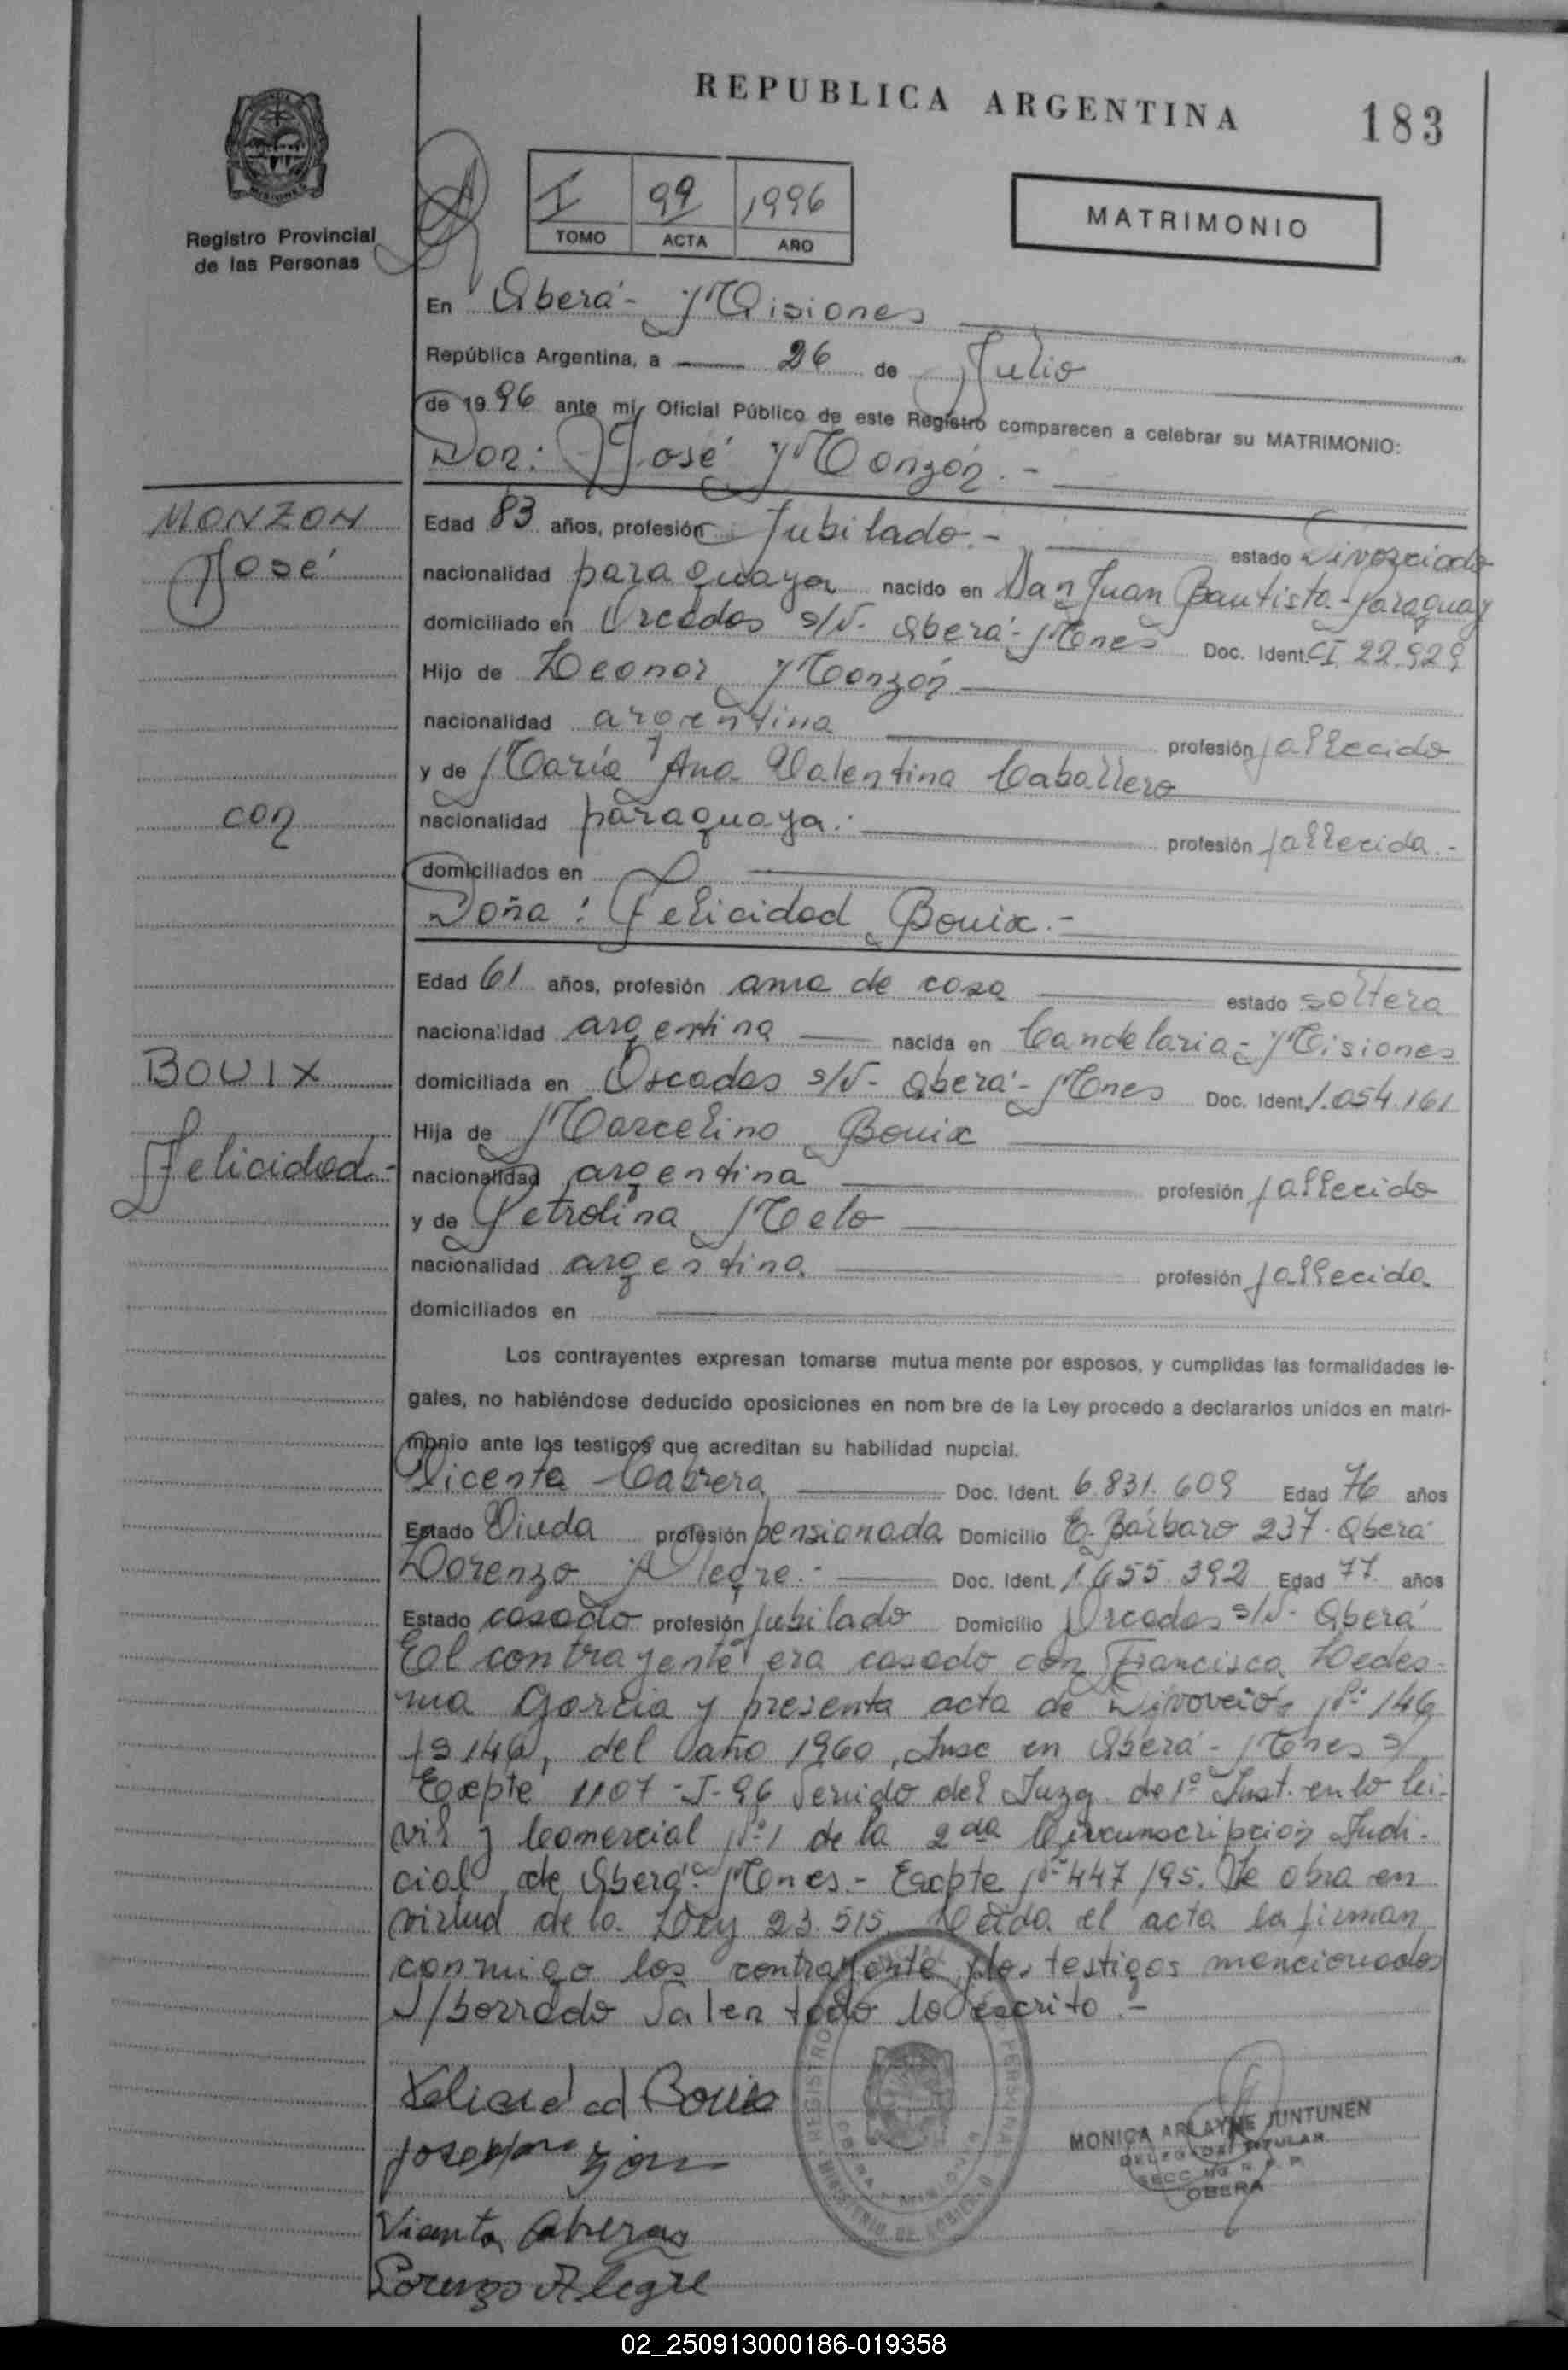 REPUBLICA ARGENTINA
183
Registro Provincial
de las Personas
I 99 1996
TOMO ACTA AÑO
MATRIMONIO
En Oberá - Misiones
República Argentina, a 26 de Julio
de 1996 ante mi, Oficial Público de este Registro comparecen a celebrar su MATRIMONIO:
Don: José Monzón.-
MONZON
José
con
BOUIX
Felicidad.-
Edad 83 años, profesión Jubilado.- estado Divorciado
nacionalidad paraguaya nacido en San Juan Bautista - Paraguay
domiciliado en Orcadas s/N - Oberá - Mnes Doc. Ident. CI 22.929
Hijo de Leonor Monzón
nacionalidad argentina profesión fallecido
y de María Ana Valentina Caballero
nacionalidad paraguaya. profesión fallecida.-
domiciliados en
Doña: Felicidad Bouix.-
Edad 61 años, profesión ama de casa estado soltera
nacionalidad argentina nacida en Candelaria - Misiones
domiciliada en Orcadas s/N - Oberá - Mnes Doc. Ident. 1.054.161
Hija de Marcelino Bouix
nacionalidad argentina profesión fallecido
y de Petrolina Melo
nacionalidad argentina profesión fallecida
domiciliados en
Los contrayentes expresan tomarse mutua mente por esposos, y cumplidas las formalidades le-
gales, no habiéndose deducido oposiciones en nom bre de la Ley procedo a declararlos unidos en matri-
monio ante los testigos que acreditan su habilidad nupcial.
Vicenta Cabrera Doc. Ident. 6.831.609 Edad 76 años
Estado Viuda profesión pensionada Domicilio E. Bárbaro 237 - Oberá
Lorenzo Alegre.- Doc. Ident. 1.655.392 Edad 77 años
Estado casado profesión Jubilado Domicilio Orcadas s/N - Oberá
El contrayente era casado con Francisca Ledes-
ma Garcia y presenta acta de Nº 146
, del año 1960, Insc en Oberá - Mnes s/
Expte 1107 - J-96 venido del Juzg. de 1º Inst. en lo Ci-
vil y Comercial Nº 1 de la 2da Circunscripción Judi-
cial de Oberá - Mnes.- Expte Nº 447/95. Se obra en
virtud de la Ley 23.515. Leida el acta la firman
conmigo los contrayente y los testigos mencionados
S/borrado Valen todo lo escrito.-
Felicidad Bouix
Jose Monzon
Vicenta Cabrera
Lorenzo Alegre
MONICA ARLAYNE JUNTUNEN
DELEGADA TITULAR
OBERA
02_250913000186-019358